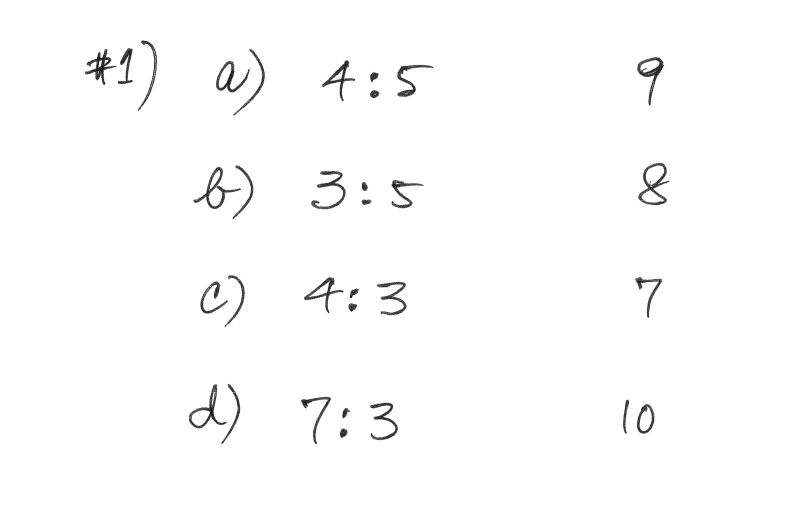 #1) a) 4:5 9
b) 3:5 8
c) 4:3 7
d) 7:3 10